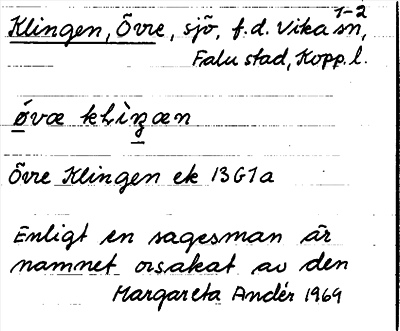 1-2
Klingen, Övre, sjö, f.d. Vika sn,
Falu stad, Kopp.l.
óvœ khìŋœn
Övre Klingen ek 13G1a
Enligt en sagesman är
namnet orsakat av den
Margareta Andér 1969